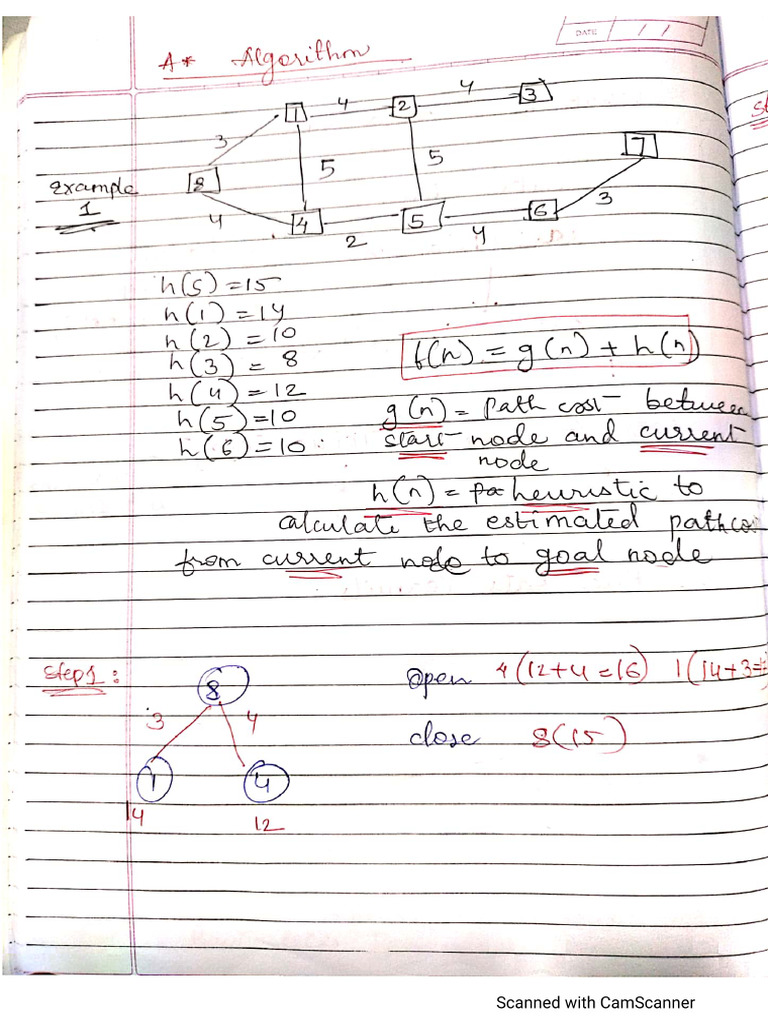 DATE / /
A* Algorithm
4
4
1
2
3
3
5
5
7
Example
1
8
4
4
2
5
4
6
3
h(S) = 15
h(1) = 14
h(2) = 10
h(3) = 8
h(4) = 12
h(5) = 10
h(6) = 10
f(n) = g(n) + h(n)
g(n) = path cost between
start node and current
node
h(n) = pa heuristic to
calculate the estimated path
from current node to goal node
Step 1:
8
3
4
1
4
14
12
open 4(12+4=16) 1(14+3=
close 8(15)
Scanned with CamScanner